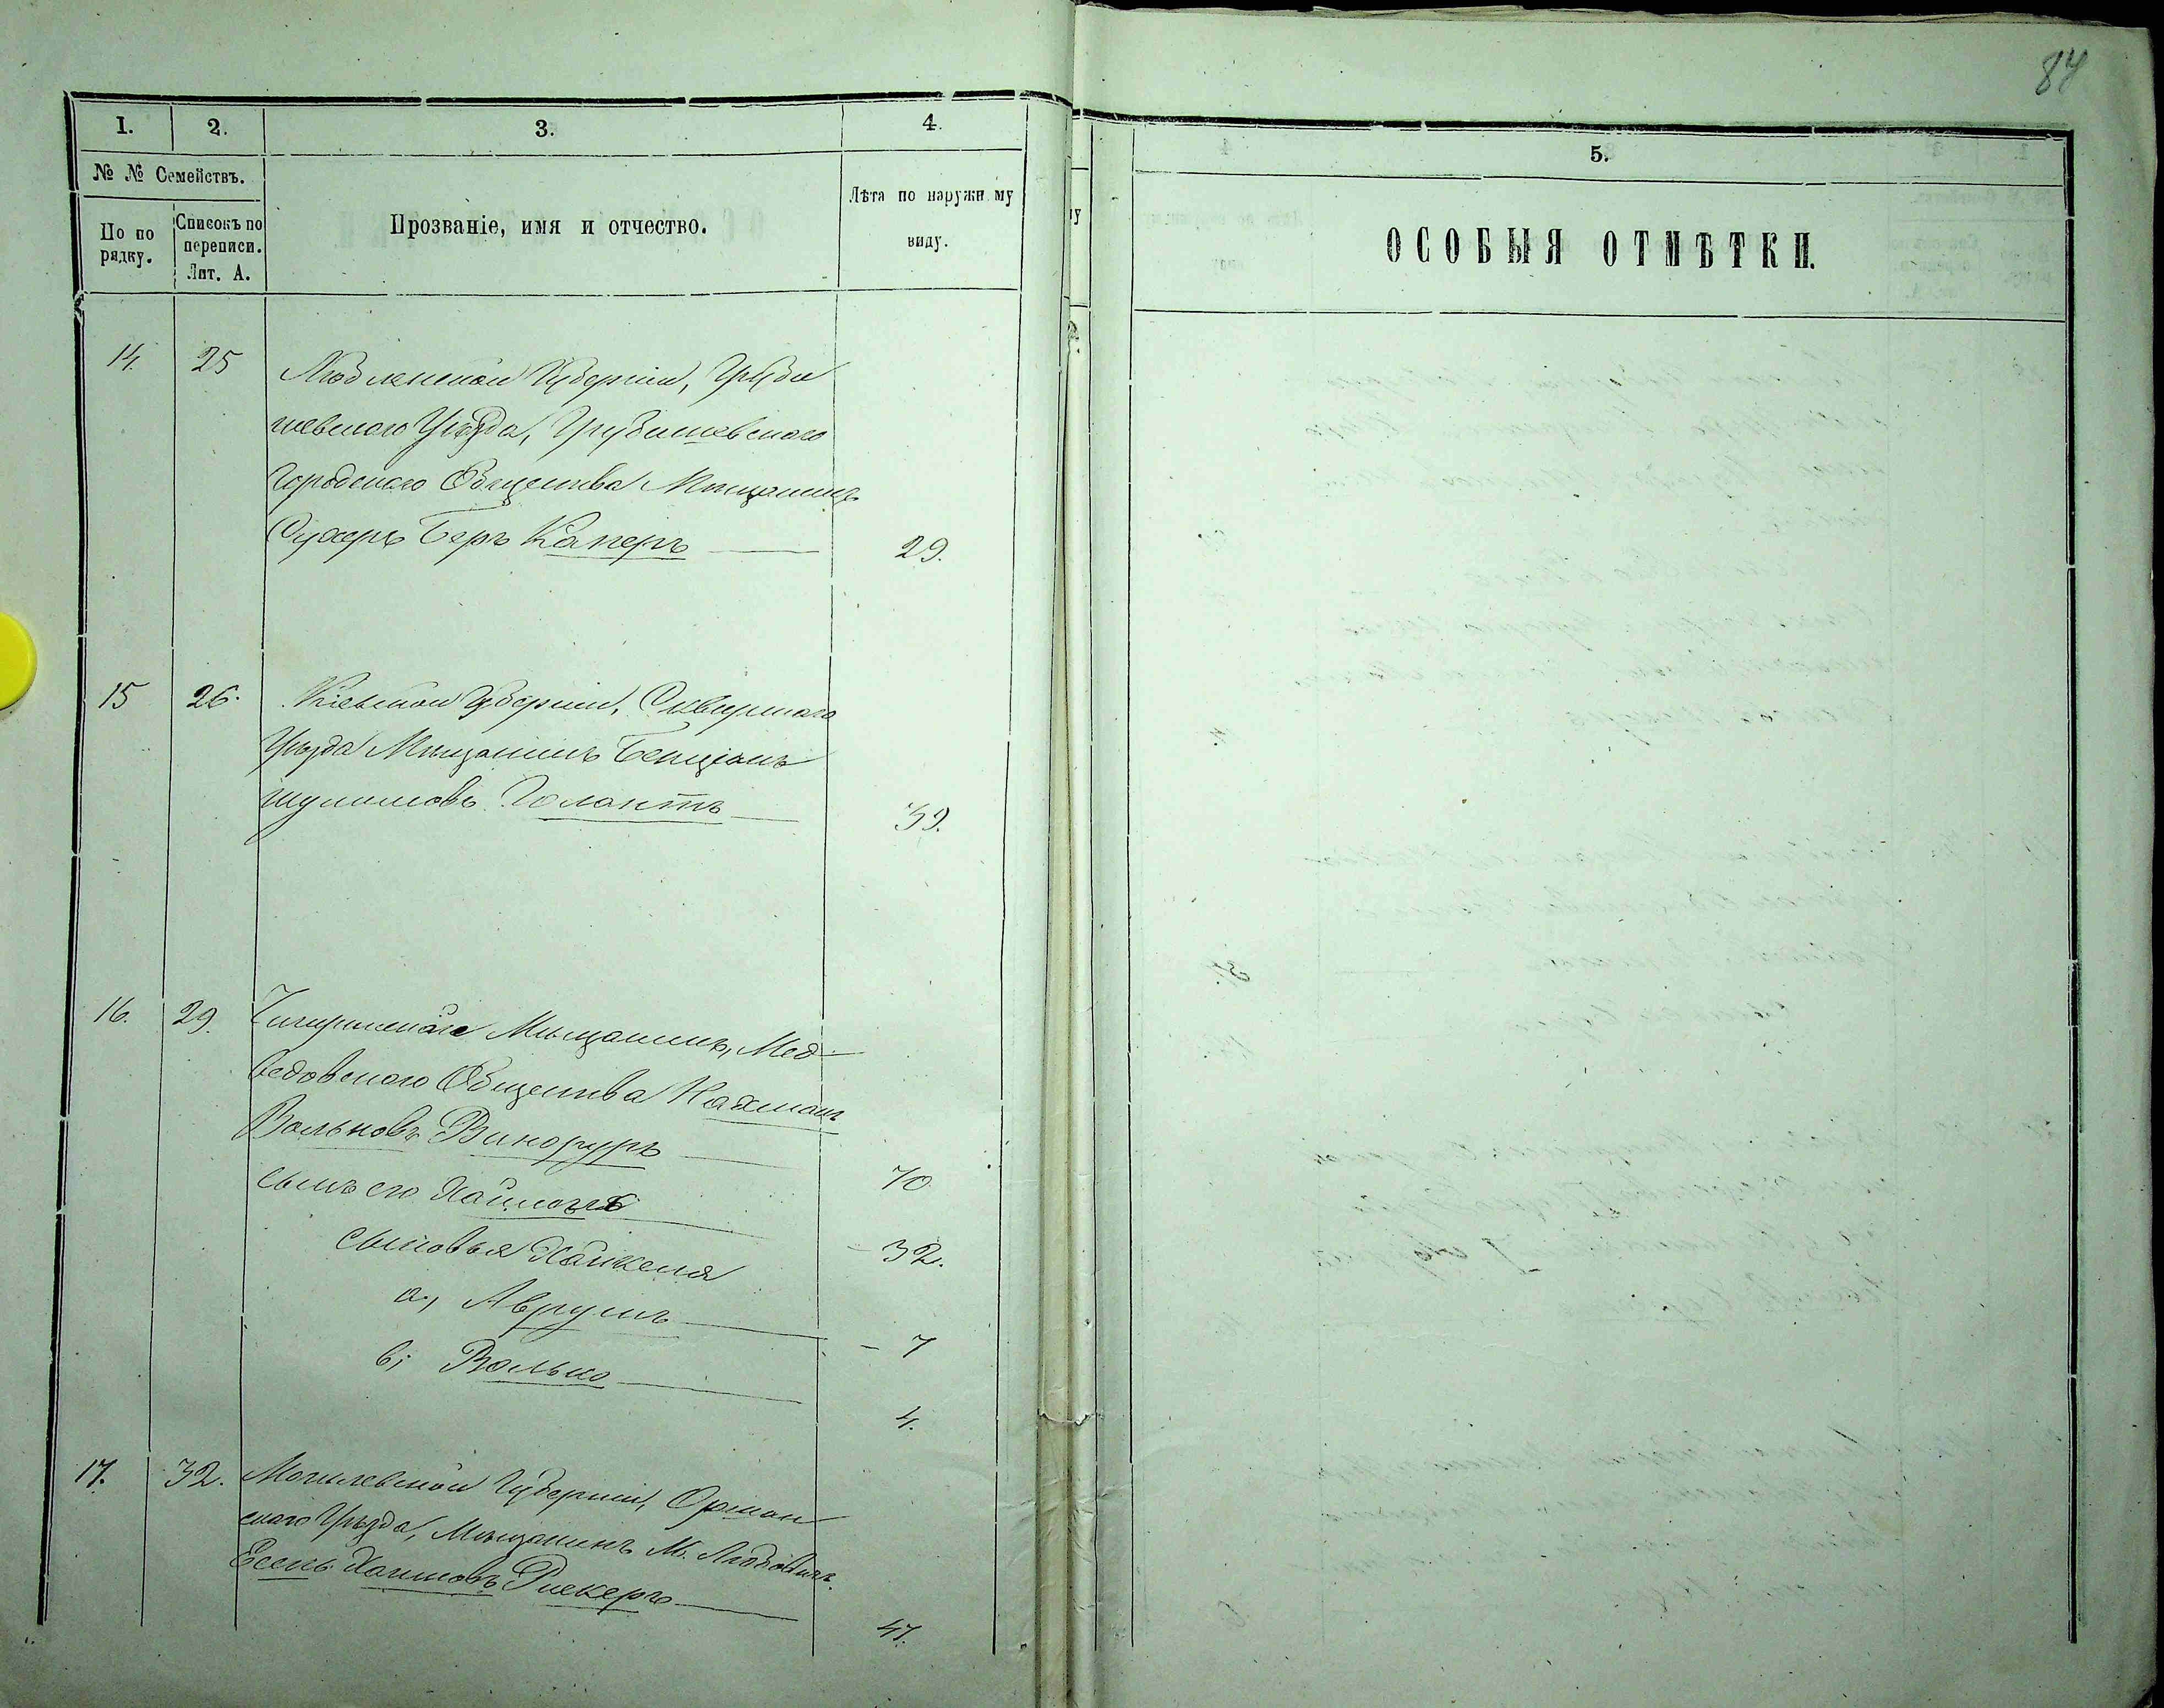 84
1. 2. 3. 4.
№ № Семействъ.
По по рядку.
Списокъ по переписи. Лит. А.
Прозваніе, имя и отчество.
Лѣта по наружн му виду.
5.
ОСОБЫЯ ОТМѢТКИ.
14. 25 Люблинской Губерніи, Груби
шевскаго Уѣзда, Грубишевскаго
Городскаго Общества Мѣщанинъ
Сухеръ Беръ Каперъ 29.
15 26. Кіевской Губерніи, Сквирскаго
Уѣзда Мѣщанинъ Бенціонъ
Шулимовъ Голантъ 39.
16. 29. Чигиринскій Мѣщанинъ, Мед-
ведовскаго Общества Нахманъ
Вольковъ Винокуръ 70
сынъ его 32.
сыновья Хаикеля
а, Аврумъ 7
в, Волько 4.
17. 32. Могилевской Губерніи, Оршан
скаго Уѣзда, Мѣщанинъ М. Любавичъ
Хаимовъ 47.